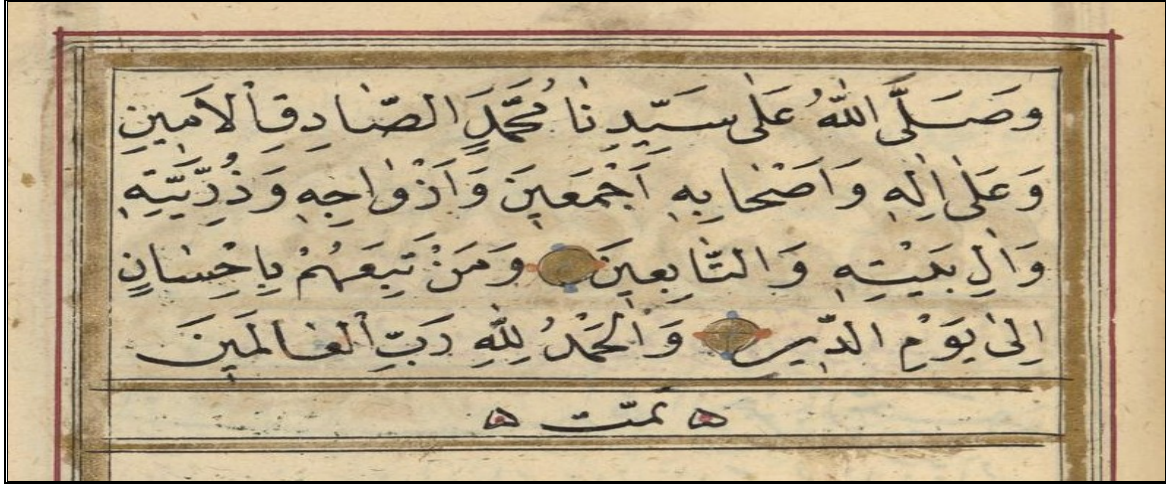 وَصَلَّى اللّٰهُ عَلٰى سَيِّدِنَا مُحَمَّدٍ الصَّادِقِ الْاَمِينِ
وَعَلٰى اٰلِهِ وَاَصْحَابِهِ اَجْمَعِينَ وَاَزْوَاجِهِ وَذُرِّيَّتِهِ
وَاٰلِ بَيْتِهِ وَالتَّابِعِينَ وَمَنْ تَبِعَهُمْ بِاِحْسَانٍ
اِلٰى يَوْمِ الدِّينِ وَالْحَمْدُ لِلّٰهِ رَبِّ الْعَالَمِينَ
ه تمّت ه